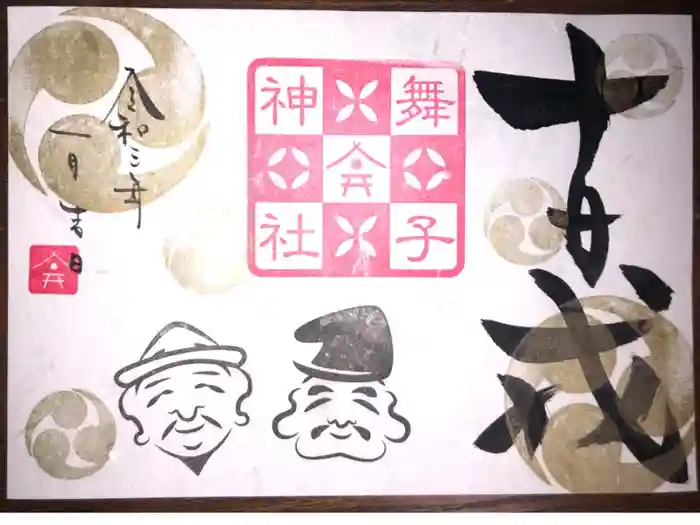 十日戎
舞子
神社
令和三年
一月吉日